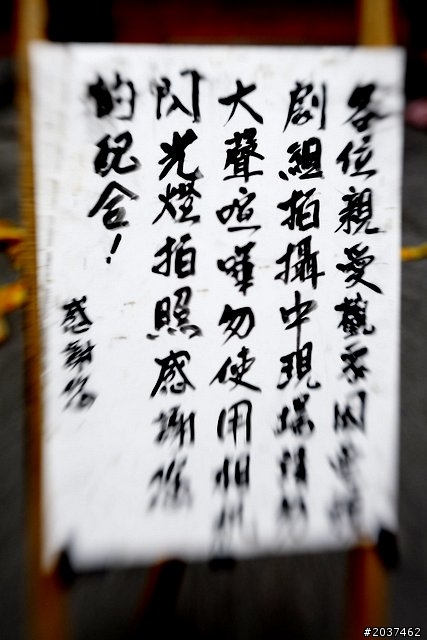 各位親愛觀眾因電視
劇組拍攝中現場請勿
大聲喧嘩勿使用相機
閃光燈拍照感謝您
的配合!
感謝您
#2037462